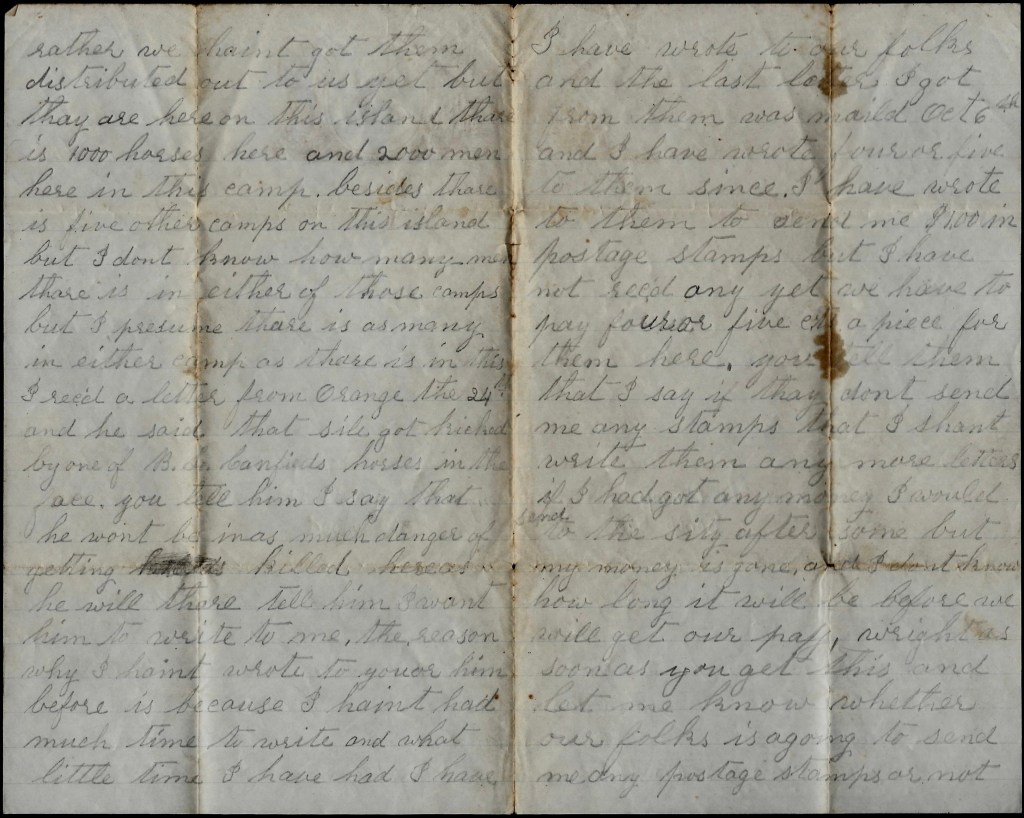 rather we haint got them
distributed out to us yet but
thay are here on this island thare
is 1000 horses here and 2000 men
here in this camp. besides thare
is five other camps on this island
but I dont know how many men
thare is in either of those camps
but I presume thare is as many
in either camp as thare is in this
I recd a letter from Orange the 24th
and he said that sile got kicked
by one of B. Canfields horses in the
face. you tell him I say that
he wont be in as much danger of
getting killed here as
he will thare tell him I want
him to write to me, the reason
why I haint wrote to you or him
before is because I haint had
much time to write and what
little time I have had I have
I have wrote to our folks
and the last letter I got
from them was maild Oct 6th
and I have wrote four or five
to them since. I have wrote
to them to send me $1.00 in
postage stamps but I have
not recd any yet we have to
pay four or five cts a piece for
them here. you tell them
that I say if thay dont send
me any stamps that I shant
write them any more letters
if I had got any money I would
send to the sity after some but
my money is gone, and I dont know
how long it will be before we
will get our pay, wright as
soon as you get this and
let me know whether
our folks is agoing to send
me any postage stamps or not